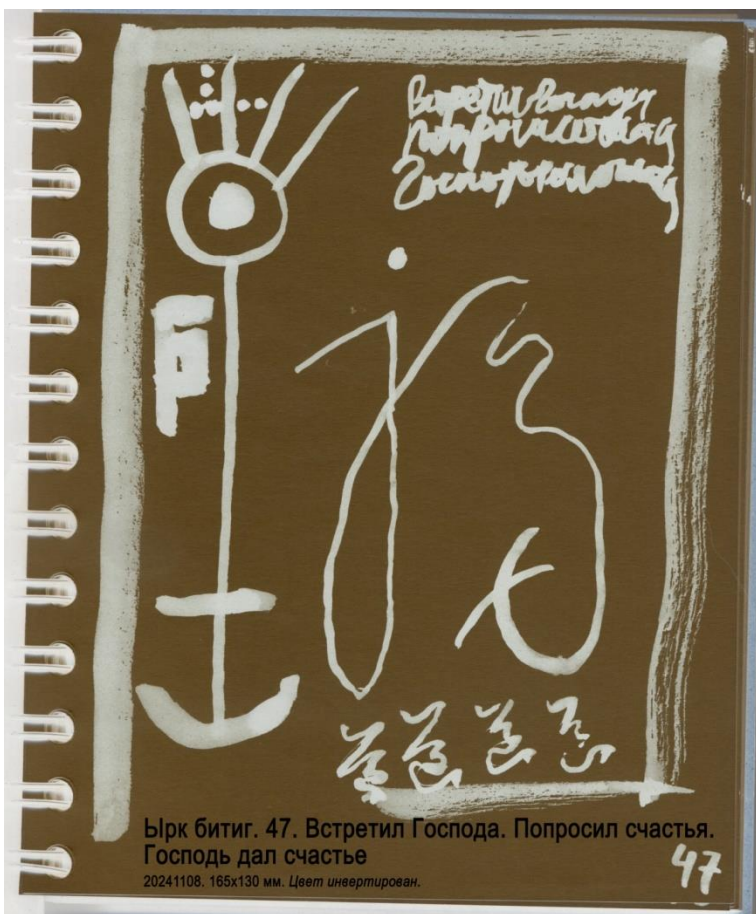 Встретил Господа
Попросил счастья
Господь дал счастье
Ырк битиг. 47. Встретил Господа. Попросил счастья.
Господь дал счастье
20241108. 165x130 мм. Цвет инвертирован.
47